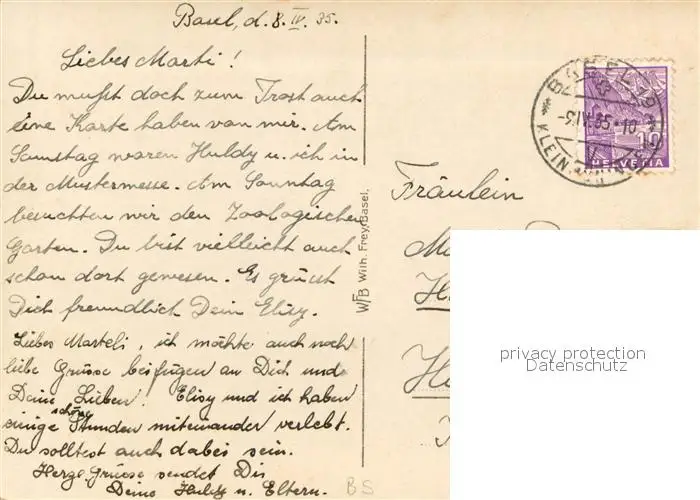 Basel, d. 8. IV. 35.
Liebes Marti!
Du mußt doch zum Trost auch
eine Karte haben von mir. Am
Samstag waren Huldy u. ich in
der Mustermesse. Am Sonntag
besuchten wir den Zoologischen
Garten. Du bist vielleicht auch
schon dort gewesen. Es grüsst
Dich freundlich Dein Elisy.
Liebes Marteli, ich möchte auch noch
liebe Grüsse beifügen an Dich und
Deine Lieben! Elisy und ich haben
einige schöne Stunden miteinander verlebt.
Du solltest auch dabei sein.
Herzl. Grüsse sendet Dir
Deine Huldy u. Eltern.
BS
W/FB Wilh. Frey/Basel.
BASEL
-9.IV.35.-10
KLEIN
10
HELVETIA
Fräulein
privacy protection
Datenschutz